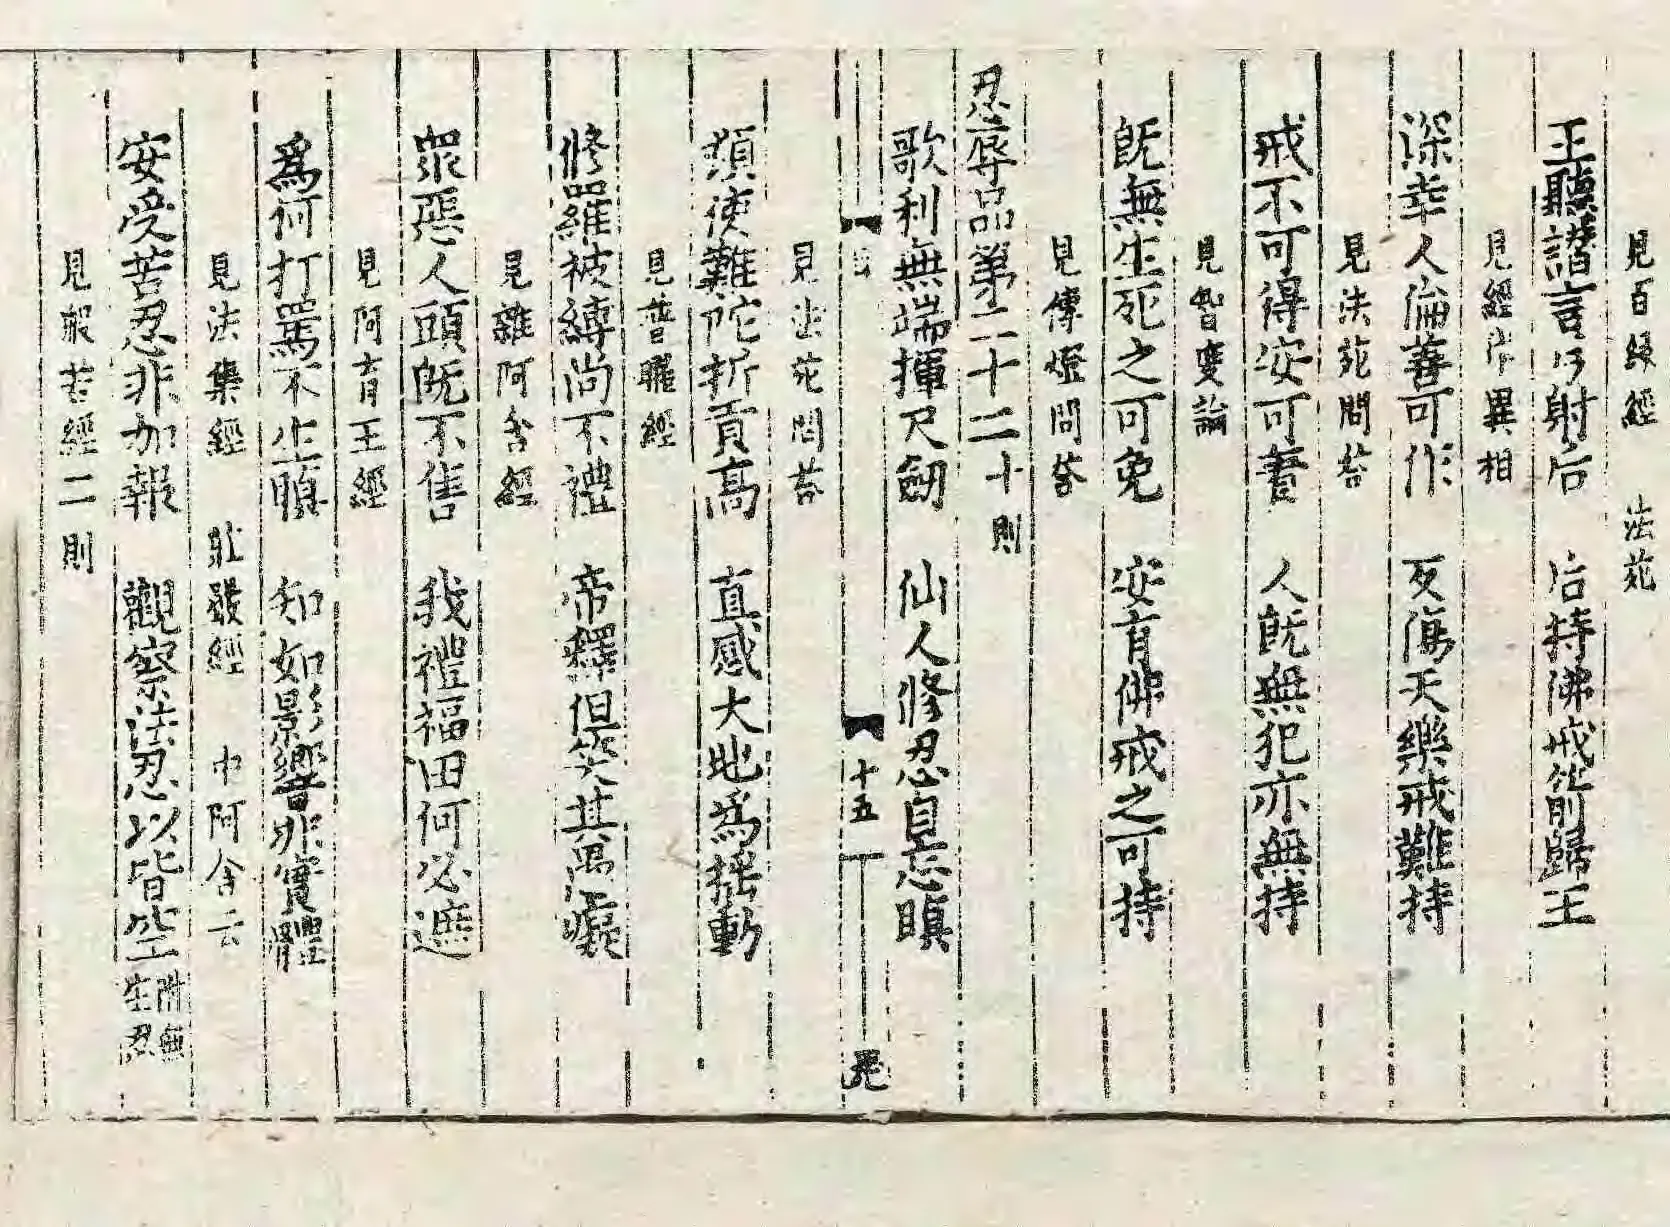 見百緣經　法苑
王聽譛言乃射后　后持佛戒箭歸王
見經律異相
深幸人倫善可作　反傷天樂戒難持
見法苑問答
戒不可得安可　人既無犯亦無持
見智度論
既無生死之可免　安有佛戒之可持
見傳燈問答
忍辱品第二十二　十則
歌利無端揮尺劒　仙人修忍自忘瞋
十五
見法苑問荅
頻使難陀折貢高　直感大地為揺動
見普曜經
修羅被縛尚不禮　帝釋但笑其愚癡
見雜阿含經
眾惡人頭既不售　我禮福田何必遮
見阿育王經
爲何打罵不生瞋　知如影響非實體
見法集經　莊嚴經　中阿含云
安受苦忍非加報　觀察法忍以皆空　附無生忍
見般若經二則